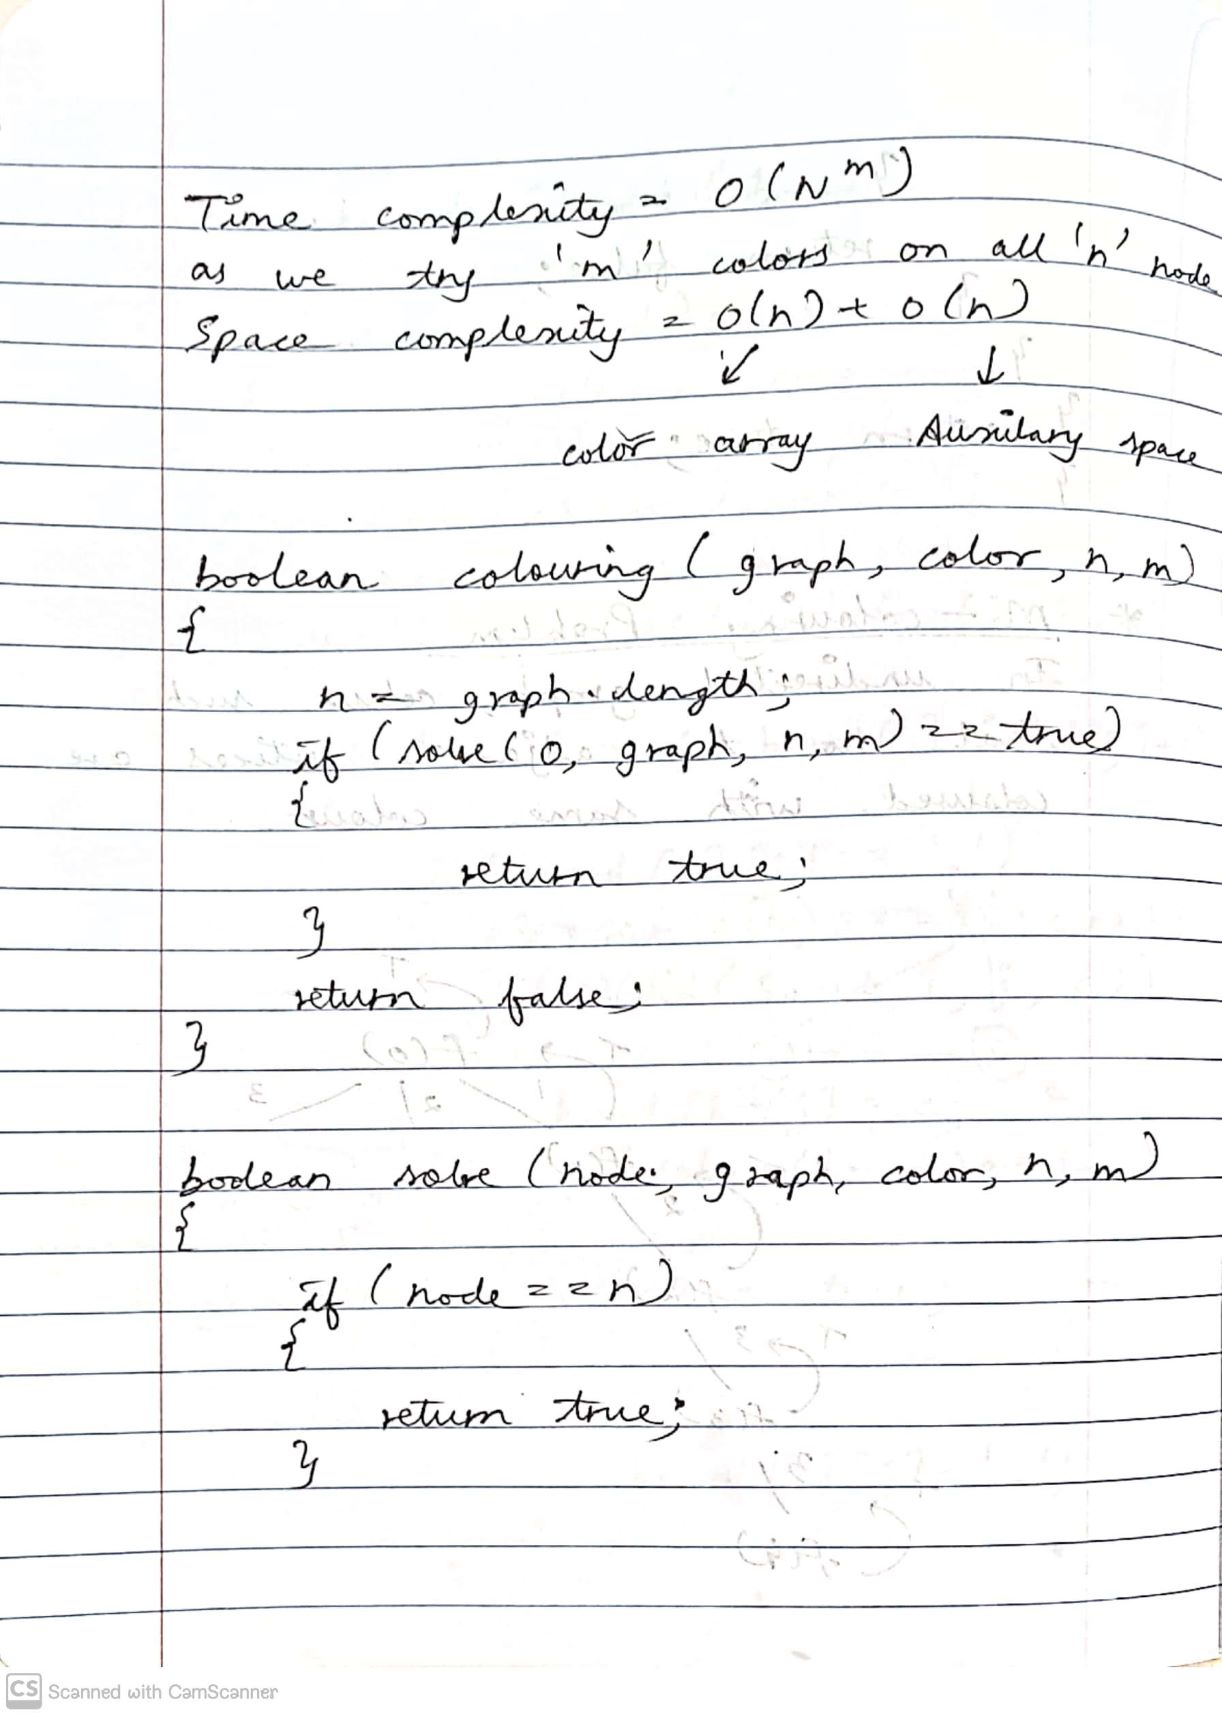 Time complexity = O(N^m)
as we try 'm' colors on all 'n' node
Space complexity = O(n) + O(n)
↙ ↓
color array Auxilary space
boolean colouring (graph, color, n, m)
{
n = graph.length;
if (solve(0, graph, n, m) == true)
{
return true;
}
return false;
}
boolean solve (node, graph, color, n, m)
{
if (node == n)
{
return true;
}
CS Scanned with CamScanner